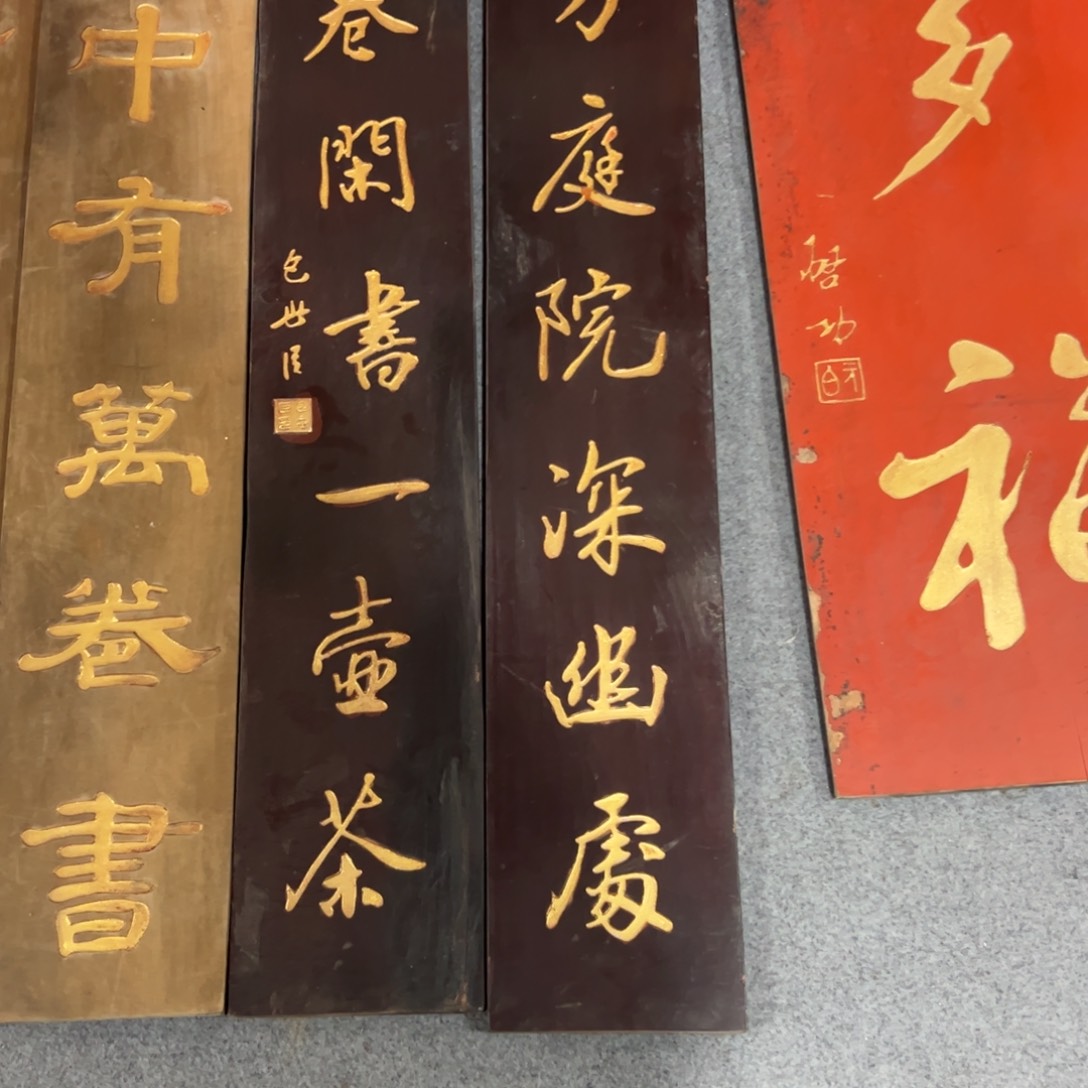 多福
啓功
元白
方庭院深幽處
卷閑書一壺茶
包世臣
中有萬卷書